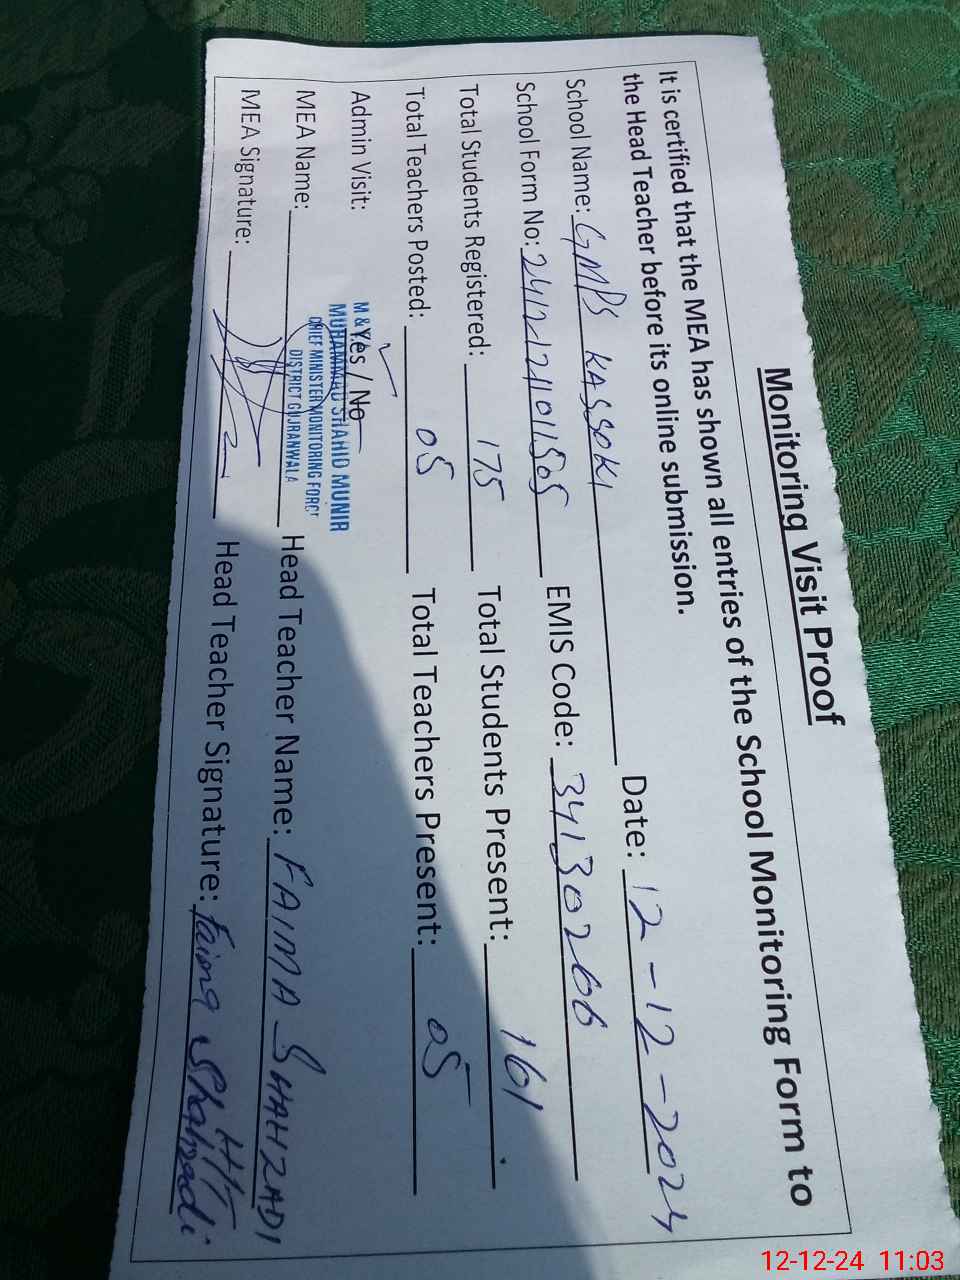 Monitoring Visit Proof
It is certified that the MEA has shown all entries of the School Monitoring Form to
the Head Teacher before its online submission.
School Name: GMPS KASSOKI Date: 12-12-2024
School Form No: EMIS Code: 34130266
Total Students Registered: 175 Total Students Present: 161
Total Teachers Posted: 05 Total Teachers Present: 05
Admin Visit: Yes / No
M &
MUHAMMAD SHAHID MUNIR
CHIEF MINISTER MONITORING FORCE
DISTRICT GUJRANWALA
MEA Name: Head Teacher Name: FAIMA SHAHZADI
MEA Signature: Head Teacher Signature: Faima Shahzadi
HT
12-12-24 11:03